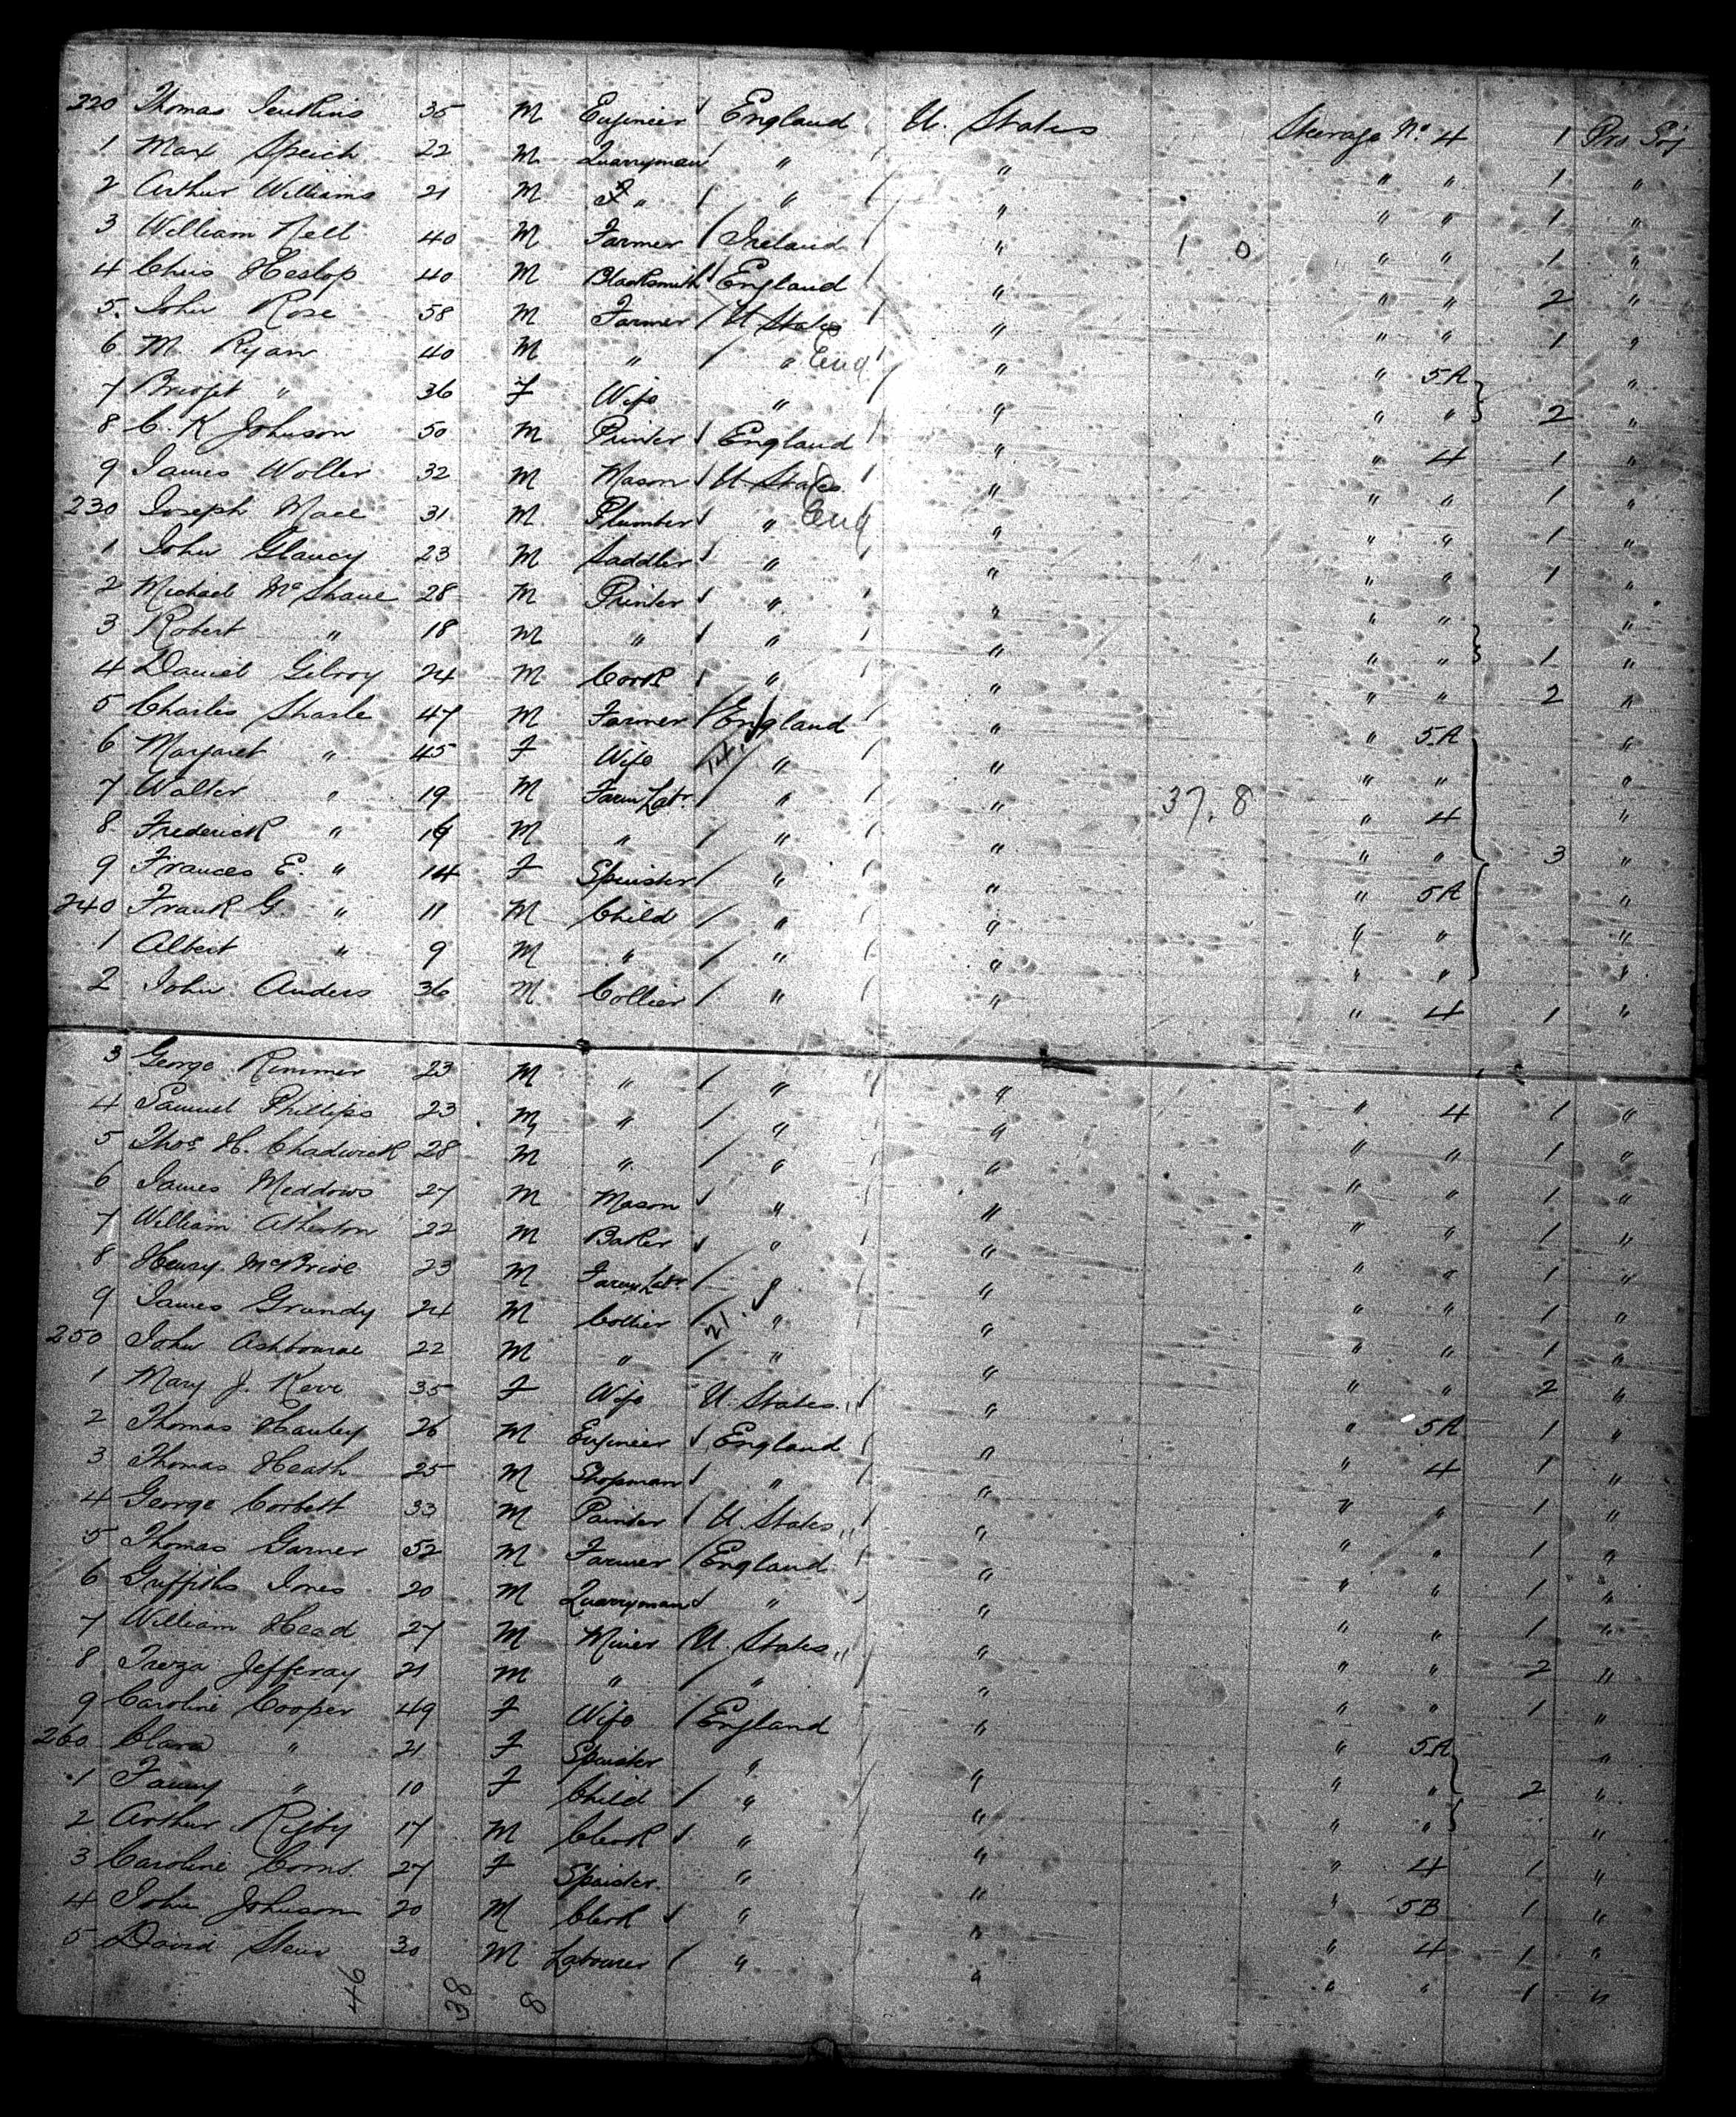 220 Thomas Jenkins 35 M Engineer England U. States Steerage No. 4 1 Pro Soj
1 Max Speich 22 M Quarryman " " " " 1 "
2 Arthur Williams 21 M " " " " " 1 "
3 William Nell 40 M Farmer Ireland " 1 0 " " 1 "
4 Chris Heslop 40 M Blacksmith England " " " 2 "
5 John Rose 58 M Farmer U. States " " " 1 "
6 M. Ryan 40 M " " Eng " " 5A "
7 Bridget " 36 F Wife " " " " 2 "
8 C. K Johnson 50 M Printer England " " 4 1 "
9 James Woller 32 M Mason U. States " " " 1 "
230 Joseph Mace 31 M Plumber " Eng " " " 1 "
1 John Glancy 23 M Saddler " " " " 1 "
2 Michael McShane 28 M Printer " " " " "
3 Robert " 18 M " " " " " 1 "
4 Daniel Gilroy 24 M Cook " " " " 2 "
5 Charles Sharle 47 M Farmer England " " 5A "
6 Margaret " 45 F Wife " " " " "
7 Walter " 19 M Farm Labr " " 37.8 " 4 "
8 Frederick " 16 M " " " " " 3 "
9 Frances E. " 14 F Spinster " " " 5A "
240 Frank G. " 11 M Child " " " " "
1 Albert " 9 M " " " " " "
2 John Anders 36 M Collier " " " 4 1 "
3 George Rimmer 23 M " " " " 4 1 "
4 Samuel Phillips 23 M " " " " " 1 "
5 Thos. H. Chadwick 28 M " " " " " 1 "
6 James Meddows 27 M Mason " " " " 1 "
7 William Atherton 22 M Baker " " " " 1 "
8 Henry McBride 23 M Farm Labr " " " " 1 "
9 James Grundy 24 M Collier " " " " 1 "
250 John Ashbourne 22 M " " " " " 2 "
1 Mary J. Kerr 35 F Wife U. States " " 5A 1 "
2 Thomas Hanley 26 M Engineer England " " 4 1 "
3 Thomas Heath 25 M Shopman " " " " 1 "
4 George Corbett 33 M Painter U. States " " " 1 "
5 Thomas Garner 52 M Farmer England " " " 1 "
6 Griffiths Jones 20 M Quarryman " " " " 1 "
7 William Head 27 M Miner U. States " " " 2 "
8 Treza Jefferay 21 M " " " " " 1 "
9 Caroline Cooper 49 F Wife England " " 5A "
260 Clara " 21 F Spinster " " " " 2 "
1 Fanny " 10 F Child " " " " "
2 Arthur Rigby 17 M Clerk " " " 4 1 "
3 Caroline Corns 27 F Spinster " " " 5B 1 "
4 John Johnson 20 M Clerk " " " 4 1 "
5 David Stein 30 M Labourer " " " " 1 "
46 38 8